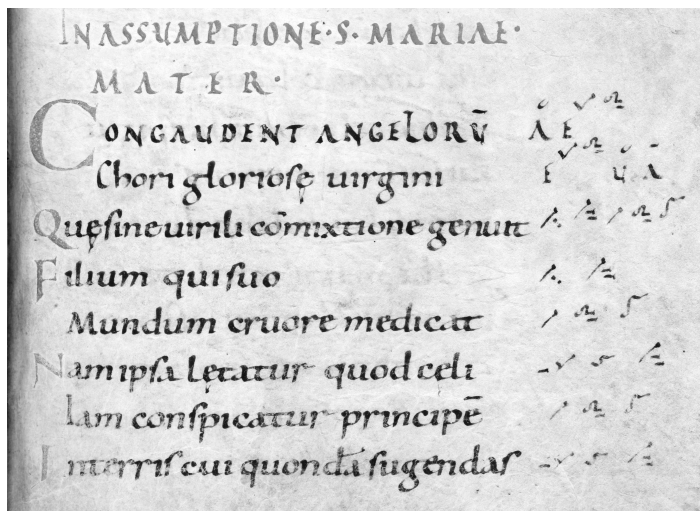 INASSUMPTIONE·S·MARIAE·
MATER·
CONGAUDENT ANGELORŪ AE
Chori gloriosę virgini E U A
Quęsineuirili cōmixtione genuit
Filium qui suo
Mundum cruore medicat
Nam ipsa lętatur quod cęli
Iam conspicatur principē
Interris cui quondā sugendas